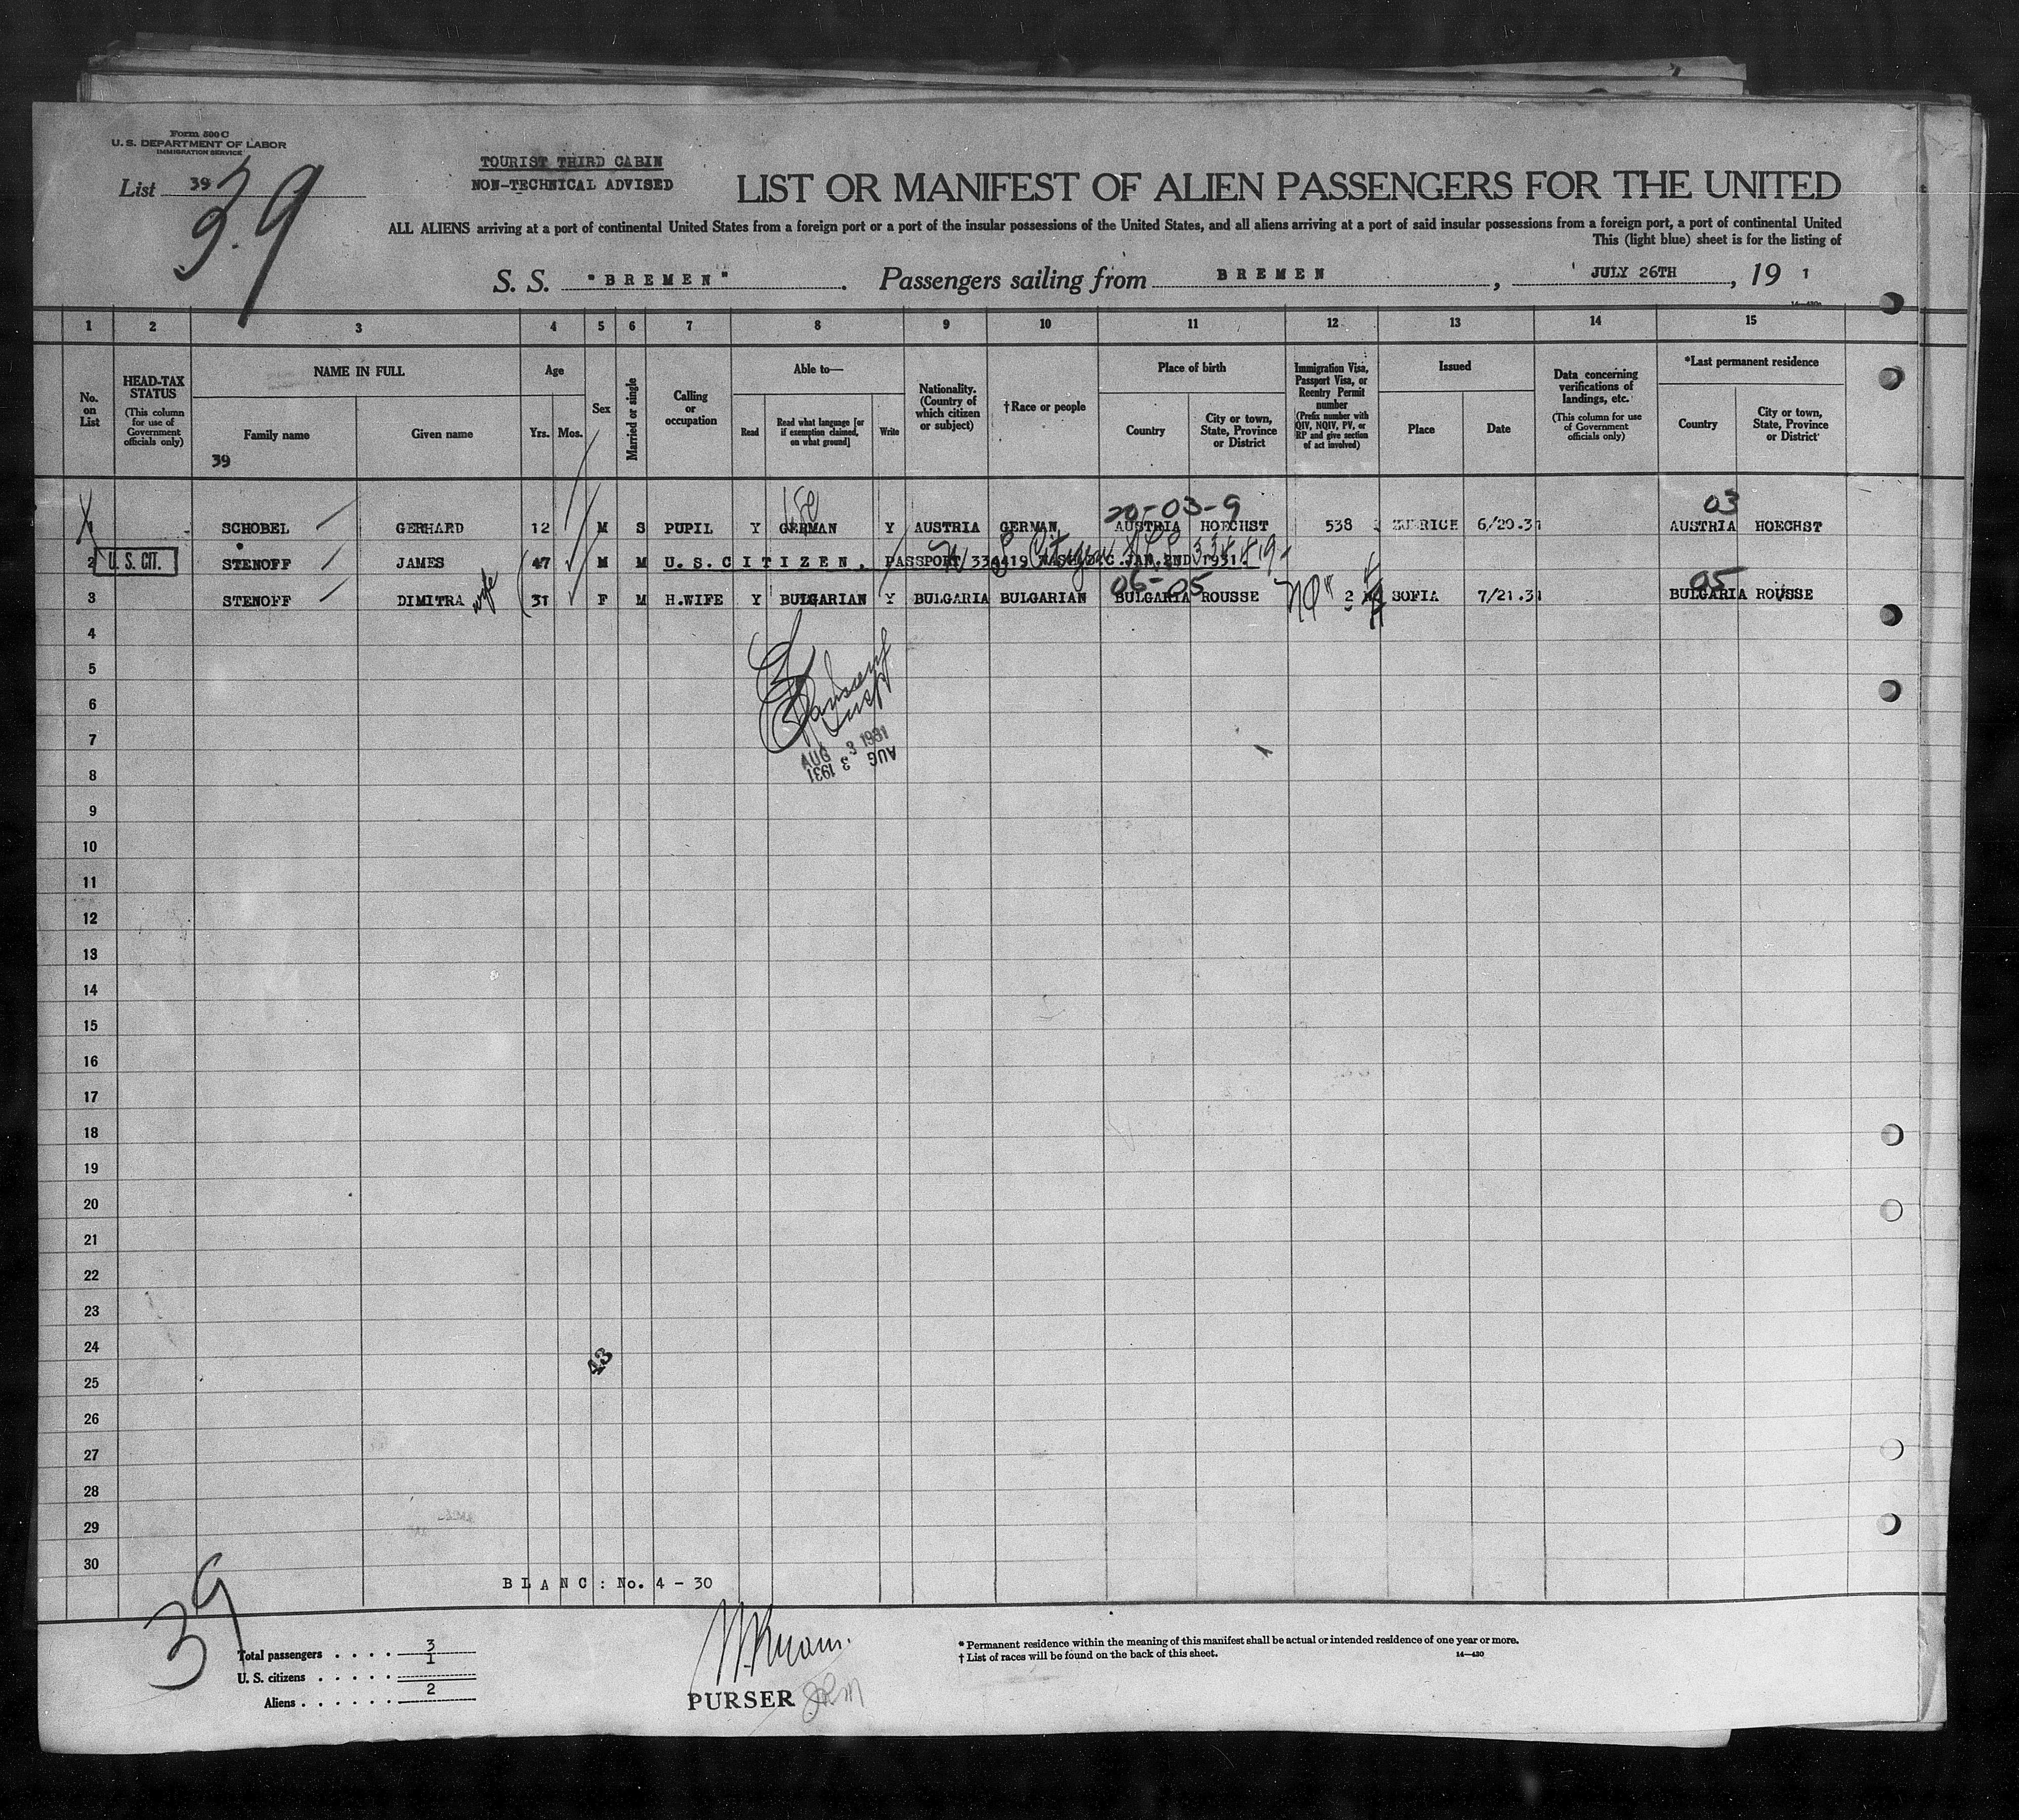 Form 500 C
U. S. DEPARTMENT OF LABOR
IMMIGRATION SERVICE
List 39
39
TOURIST THIRD CABIN
NON-TECHNICAL ADVISED
LIST OR MANIFEST OF ALIEN PASSENGERS FOR THE UNITED
ALL ALIENS arriving at a port of continental United States from a foreign port or a port of the insular possessions of the United States, and all aliens arriving at a port of said insular possessions from a foreign port, a port of continental United
This (light blue) sheet is for the listing of
S. S. "BREMEN". Passengers sailing from BREMEN, JULY 26TH, 19 1
1 2 3 4 5 6 7 8 9 10 11 12 13 14 15
No. on List
HEAD-TAX STATUS (This column for use of Government officials only)
NAME IN FULL
Family name
Given name
39
Age
Yrs. Mos.
Sex
Married or single
Calling or occupation
Able to—
Read
Read what language [or if exemption claimed, on what ground]
Write
Nationality. (Country of which citizen or subject)
†Race or people
Place of birth
Country
City or town, State, Province or District
Immigration Visa, Passport Visa, or Reentry Permit number (Prefix number with QIV, NQIV, PV, or RP and give section of act involved)
Issued
Place
Date
Data concerning verifications of landings, etc. (This column for use of Government officials only)
*Last permanent residence
Country
City or town, State, Province or District
20-03-9 03
1 SCHOBEL GERHARD 12 M S PUPIL Y GERMAN Y AUSTRIA GERMAN AUSTRIA HOECHST 538 ZURICH 6/20.31 AUSTRIA HOECHST
2 U. S. CIT. STENOFF JAMES 47 M M U.S.CITIZEN. PASSPORT 334419 WASH.D.C.JAN.2ND 1931.
06-05 05
3 STENOFF DIMITRA wife 31 F M H.WIFE Y BULGARIAN Y BULGARIA BULGARIAN BULGARIA ROUSSE 2 SOFIA 7/21.31 BULGARIA ROUSSE
4
5
6
Insp
7
AUG 3 1931
AUG 3 1931
8
9
10
11
12
13
14
15
16
17
18
19
20
21
22
23
24
43
25
26
27
28
29
30
BLANC: No. 4 - 30
39
Total passengers . . . . 3
U. S. citizens . . . . . 1
Aliens . . . . . . 2
PURSER
* Permanent residence within the meaning of this manifest shall be actual or intended residence of one year or more.
† List of races will be found on the back of this sheet.
14—430